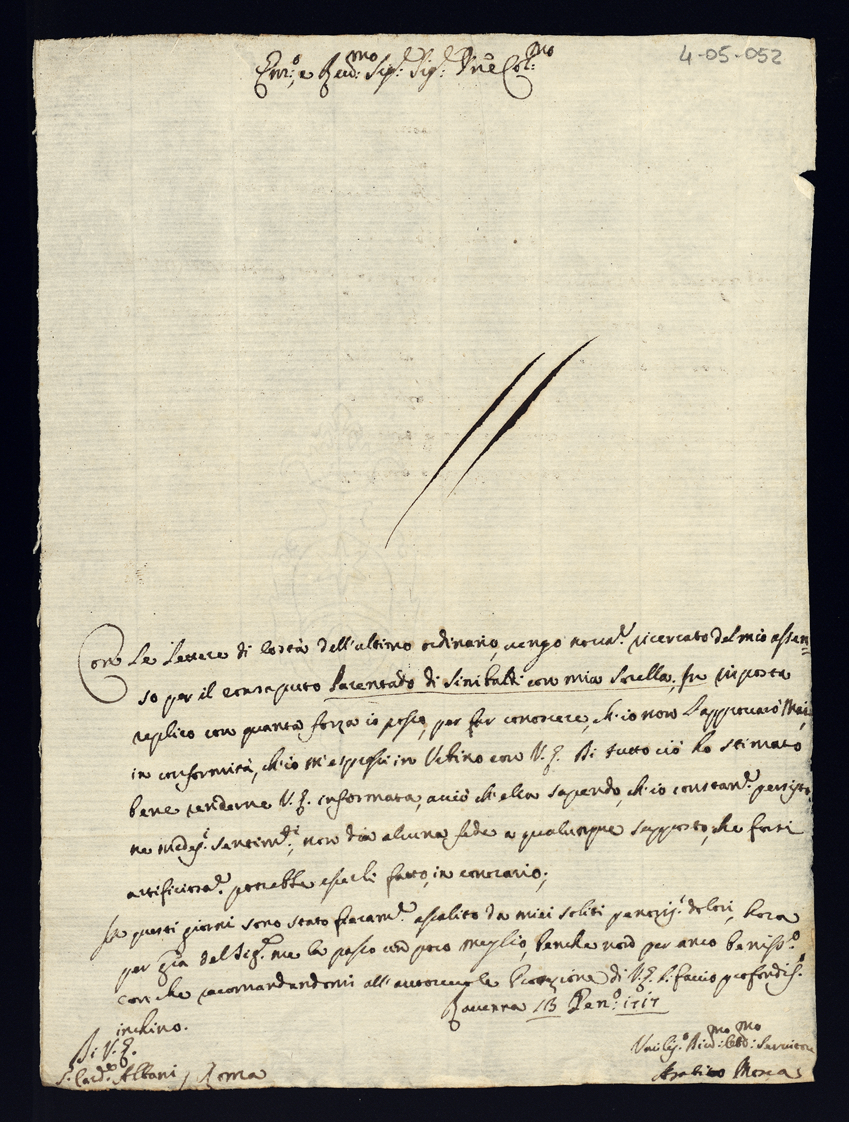 4-05-052
Em:o e Reu:mo Sig:r Sig:r Pñe Col:mo
Con le Lettere di costà dell'ultimo ordinario, uengo nouam:te ricercato del mio assen=
so per il consaputo Parentado di Sinibaldi con mia Sorella, in risposta
replico con quanta forza io posso, per far conoscere, ch'io non l'approuarò Mai,
in conformità, ch'io m'espressi in Urbino con V. E. Di tutto ciò hò stimato
bene renderne V. E. informata, acciò ch'ella sapendo, ch'io constant:te persisto
ne medes:i sentim:ti, non dia alcuna fede a qualunque supposto, che forsi
artificiosam:te potrebbe esserli fatto, in contrario;
In questi giorni sono stato fieram:te assalito da miei soliti dolori, hora
per gra del Sig:re me la passo con poco meglio, benche non per anco beniss:o
con che racomandandomi all'autoreuole Protezione di V. E. li faccio profondiss:o
inchino.
Rauenna 13 Gen:o 1717
Di V. E.
S:r Card:le Albani / Roma
Vmiliss:o Diu:mo Obb:mo Seruitore
Mosca